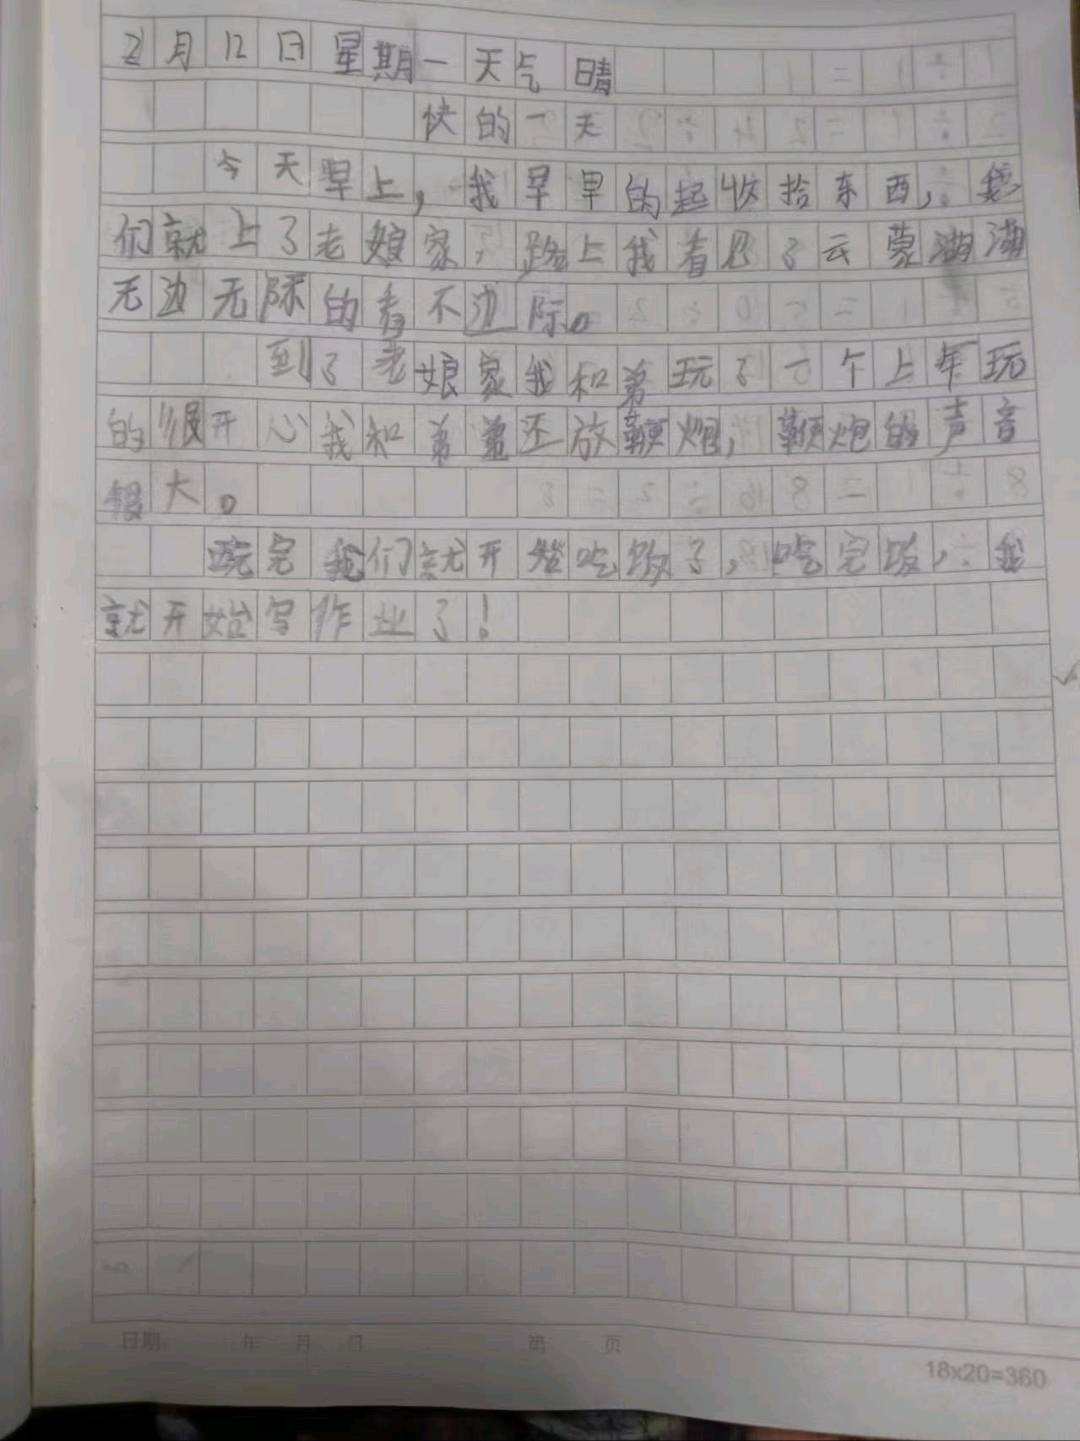 2月12日星期一天气晴
快的一天
今天早上,我早早的起收拾东西,我
们就上了老娘家,路上我看见了云蒙满满
无边无际的看不边际。
到了老娘家我和弟玩了一个上午玩
的很开心我和弟弟还放鞭炮,鞭炮的声音
很大。
玩完我们就开始吃饭了,吃完饭,我
就开始写作业了!
日期 年 月 日 第 页
18x20=360